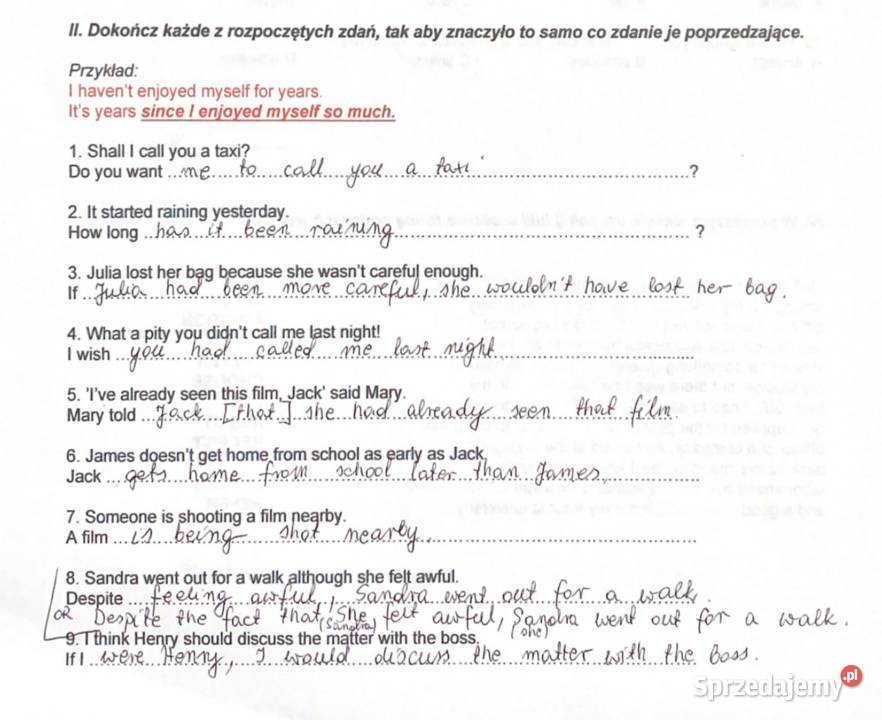 II. Dokończ każde z rozpoczętych zdań, tak aby znaczyło to samo co zdanie je poprzedzające.
Przykład:
I haven't enjoyed myself for years.
It's years since I enjoyed myself so much.
1. Shall I call you a taxi?
Do you want me to call you a taxi ?
2. It started raining yesterday.
How long has it been raining ?
3. Julia lost her bag because she wasn't careful enough.
If Julia had been more careful, she wouldn't have lost her bag.
4. What a pity you didn't call me last night!
I wish you had called me last night.
5. 'I've already seen this film, Jack' said Mary.
Mary told Jack [that] she had already seen that film.
6. James doesn't get home from school as early as Jack.
Jack gets home from school later than James.
7. Someone is shooting a film nearby.
A film is being shot nearby.
8. Sandra went out for a walk although she felt awful.
Despite feeling awful, Sandra went out for a walk.
OR Despite the fact that she felt awful, Sandra went out for a walk.
(Sandra) (she)
9. I think Henry should discuss the matter with the boss.
If I were Henry, I would discuss the matter with the boss.
Sprzedajemy.pl